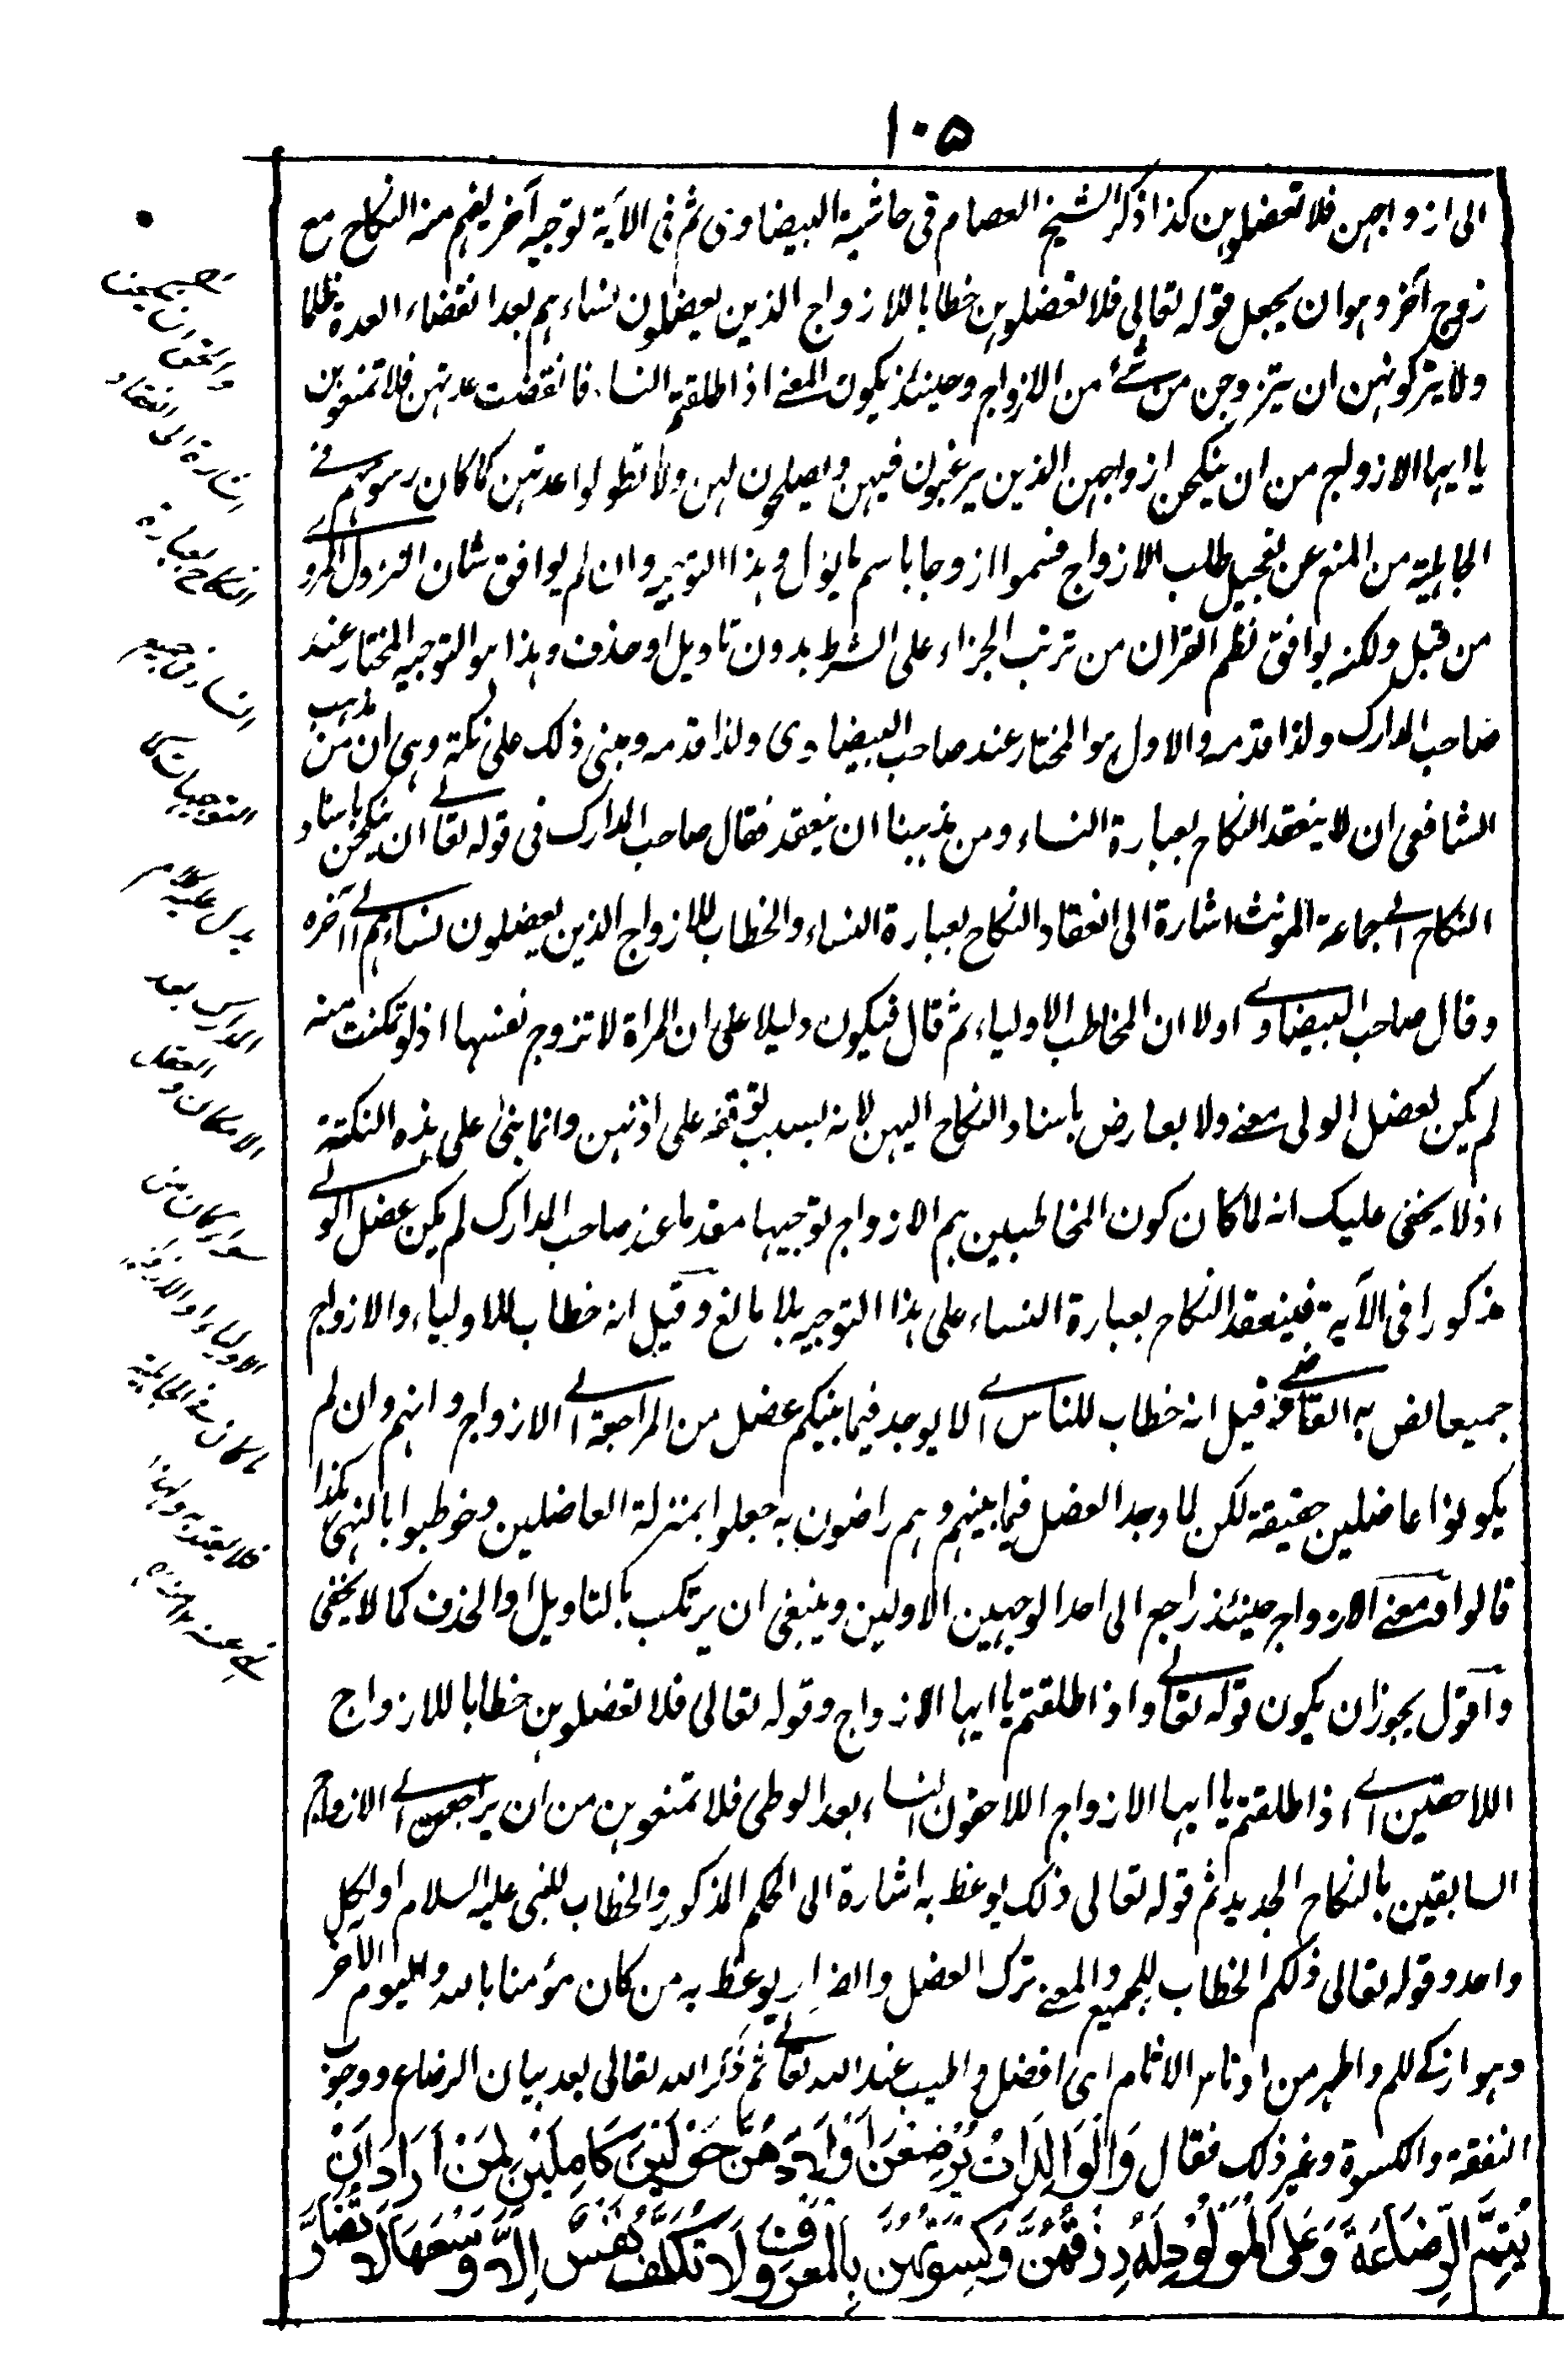 ١٠٥
الى ازواجهن فلا تعضلوهن كذا ذكر الشيخ العصام فى حاشية البيضاوى ثم فى الآية توجيه آخر يفهم منه النكاح مع
زوج آخر وهو ان يجعل قوله تعالى فلا تعضلوهن خطابا للازواج الذين يعضلون نساءهم بعد انقضاء العدة ظلما
ولا يتركونهن ان يتزوجن من شئن من الازواج وحينئذ يكون المعنے اذا طلقتم النساء فانقضت عدتهن فلا تمنعوهن
يا ايها الازواج من ان ينكحن ازواجهن الذين يرغبون فيهن ويصلحون لهن ولا تطولوا عدتهن كما كان رسومهم فے
الجاهلية من المنع عن تعجيل طلب الازواج فسموا ازوجا باسم ما يؤل وهذا التوجيه وان لم يوافق شان النزول المروے
من قبل ولكنه يوافق نظم القران من ترتب الجزاء على الشرط بدون تاويل او حذف وهذا هو التوجيه المختار عند
صاحب المدارك ولذا قدمه والاول هو المختار عند صاحب البيضاوى ولذا قدمه ومبنى ذلك على نكتة وهى ان من مذهب
الشافعى ان لا ينعقد النكاح بعبارة النساء ومن مذهبنا ان ينعقد فقال صاحب المدارك فى قوله تعالے ان ينكحن باسناد
النكاح الے جماعة المونث اشارة الى انعقاد النكاح بعبارة النساء والخطاب للازواج الذين يعضلون نساءهم الے آخره
وقال صاحب البيضاوے اولا ان المخاطب الاولياء ثم قال فيكون دليلا على ان المراة لا تزوج نفسها اذ لو تمكنت منه
لم يكن لعضل الولى معنے ولا يعارض باسناد النكاح اليهن لانه بسبب توقفه على اذنهن وانما بنى على هذه النكتة
اذ لا يخفى عليك انه لما كان كون المخاطبين هم الازواج توجيها مقدما عند صاحب المدارك لم يكن عضل الولے
مذكورا فى الآية فينعقد النكاح بعبارة النساء على هذا التوجيه بلا مانع وقيل انه خطاب للاولياء والازواج
جميعا نص به القاضے وقيل انه خطاب للناس اے لا يوجد فيما بينكم عضل من المراجعة الے الازواج وانهم وان لم
يكونوا عاضلين حقيقة لكن لما وجد العضل فيما بينهم وهم راضون به جعلوا بمنزلة العاضلين وخوطبوا بالنهى هكذا
قالوا فمعنے الازواج حينئذ راجع الى احد الوجهين الاولين وينبغى ان يرتكب بالتاويل او الحذف كما لا يخفى
واقول يجوز ان يكون قوله تعالے واذا طلقتم يا ايها الازواج وقوله تعالى فلا تعضلوهن خطابا للازواج
اللاحقين اے اذا طلقتم يا ايها الازواج اللاحقون النساء بعد الوطى فلا تمنعوهن من ان يراجعن الے الازواج
السابقين بالنكاح الجديد ثم قوله تعالى ذلك يوعظ به اشارة الى الحكم المذكور والخطاب للنبى عليه السلام او لكل
واحد وقوله تعالى ذلكم الخطاب للجميع والمعنے ترك العضل والضرار يوعظ به من كان مؤمنا بالله واليوم الآخر
وهو ازكے لكم واطهر من ادناس الاثام اى افضل واطيب عند الله تعالے ثم ذكر الله تعالى بعد بيان الرضاع ووجوب
النفقة والكسوة وغير ذلك فقال وَالْوَالِدَاتُ يُرْضِعْنَ اَوْلَادَهُنَّ حَوْلَيْنِ كَامِلَيْنِ لِمَنْ اَرَادَ اَنْ
يُتِمَّ الرَّضَاعَةَ وَعَلَى الْمَوْلُوْدِ لَهٗ رِزْقُهُنَّ وَكِسْوَتُهُنَّ بِالْمَعْرُوْفِ لَا تُكَلَّفُ نَفْسٌ اِلَّا وُسْعَهَا لَا تُضَارَّ
والحق ان
اشارة الى انعقاد
النكاح بعبارة
النساء فى جميع
التوجيهات
يدل عليه كلام
المدارك بعد
الامكان والعقل
سواء كان من
الاولياء او الازواج
كان فے الجاهلية